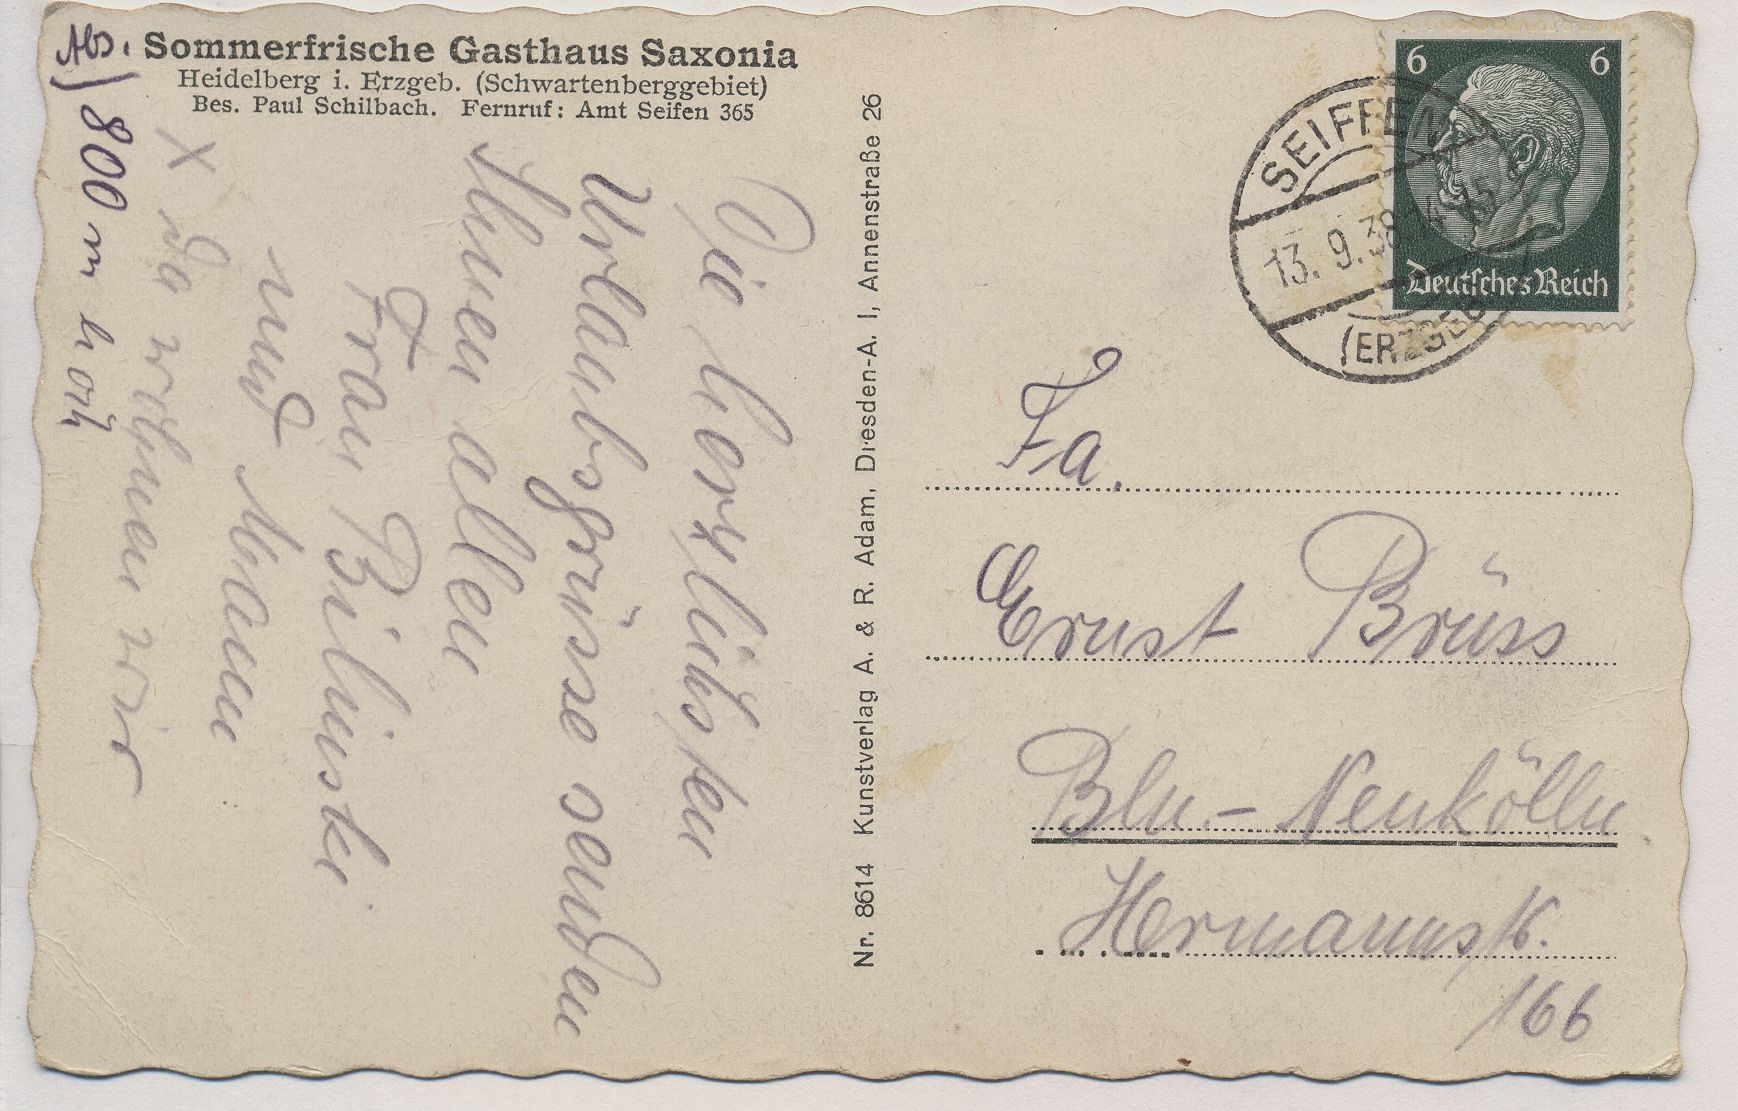 Abs.
Sommerfrische Gasthaus Saxonia
Heidelberg i. Erzgeb. (Schwartenberggebiet)
Bes. Paul Schilbach. Fernruf: Amt Seifen 365
800 m hoch
Die herzlichsten
Urlaubsgrüsse senden
Ihnen allen
Frau Bilinski
und Mann
X da wohnen wir
Nr. 8614 Kunstverlag A. & R. Adam, Dresden-A. I, Annenstraße 26
6 6
Deutsches Reich
SEIFFEN
13.9.38.14-15
(ERZGEB
Fa.
Ernst Brüss
Bln.- Neukölln
Hermannstr.
166